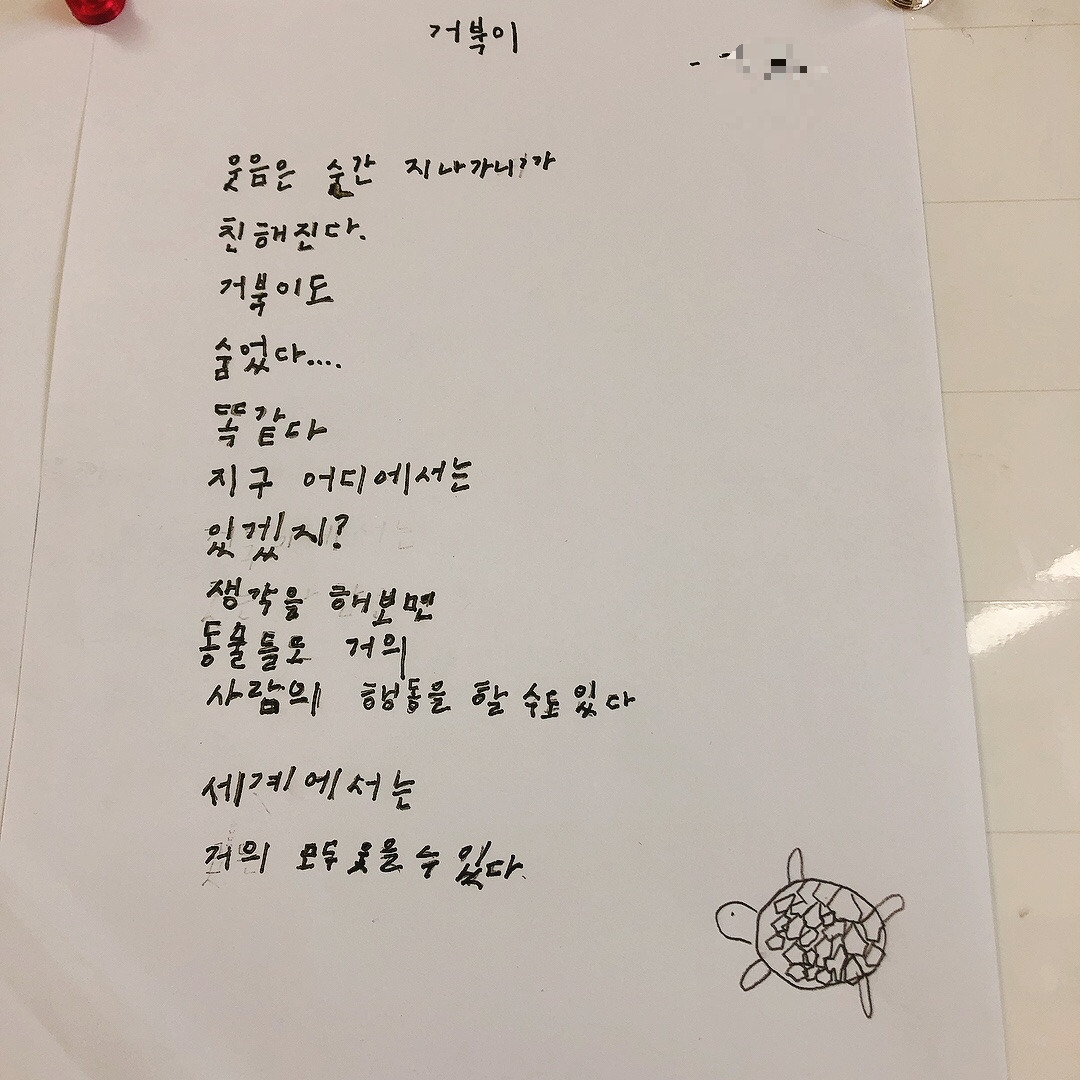 거북이
웃음은 순간 지나가니?가
친해진다.
거북이도
숨었다....
똑같다
지구 어디에서는
있겠지?
생각을 해보면
동물들도 거의
사람의 행동을 할 수도 있다
세계에서는
거의 모두 웃을 수 있다.